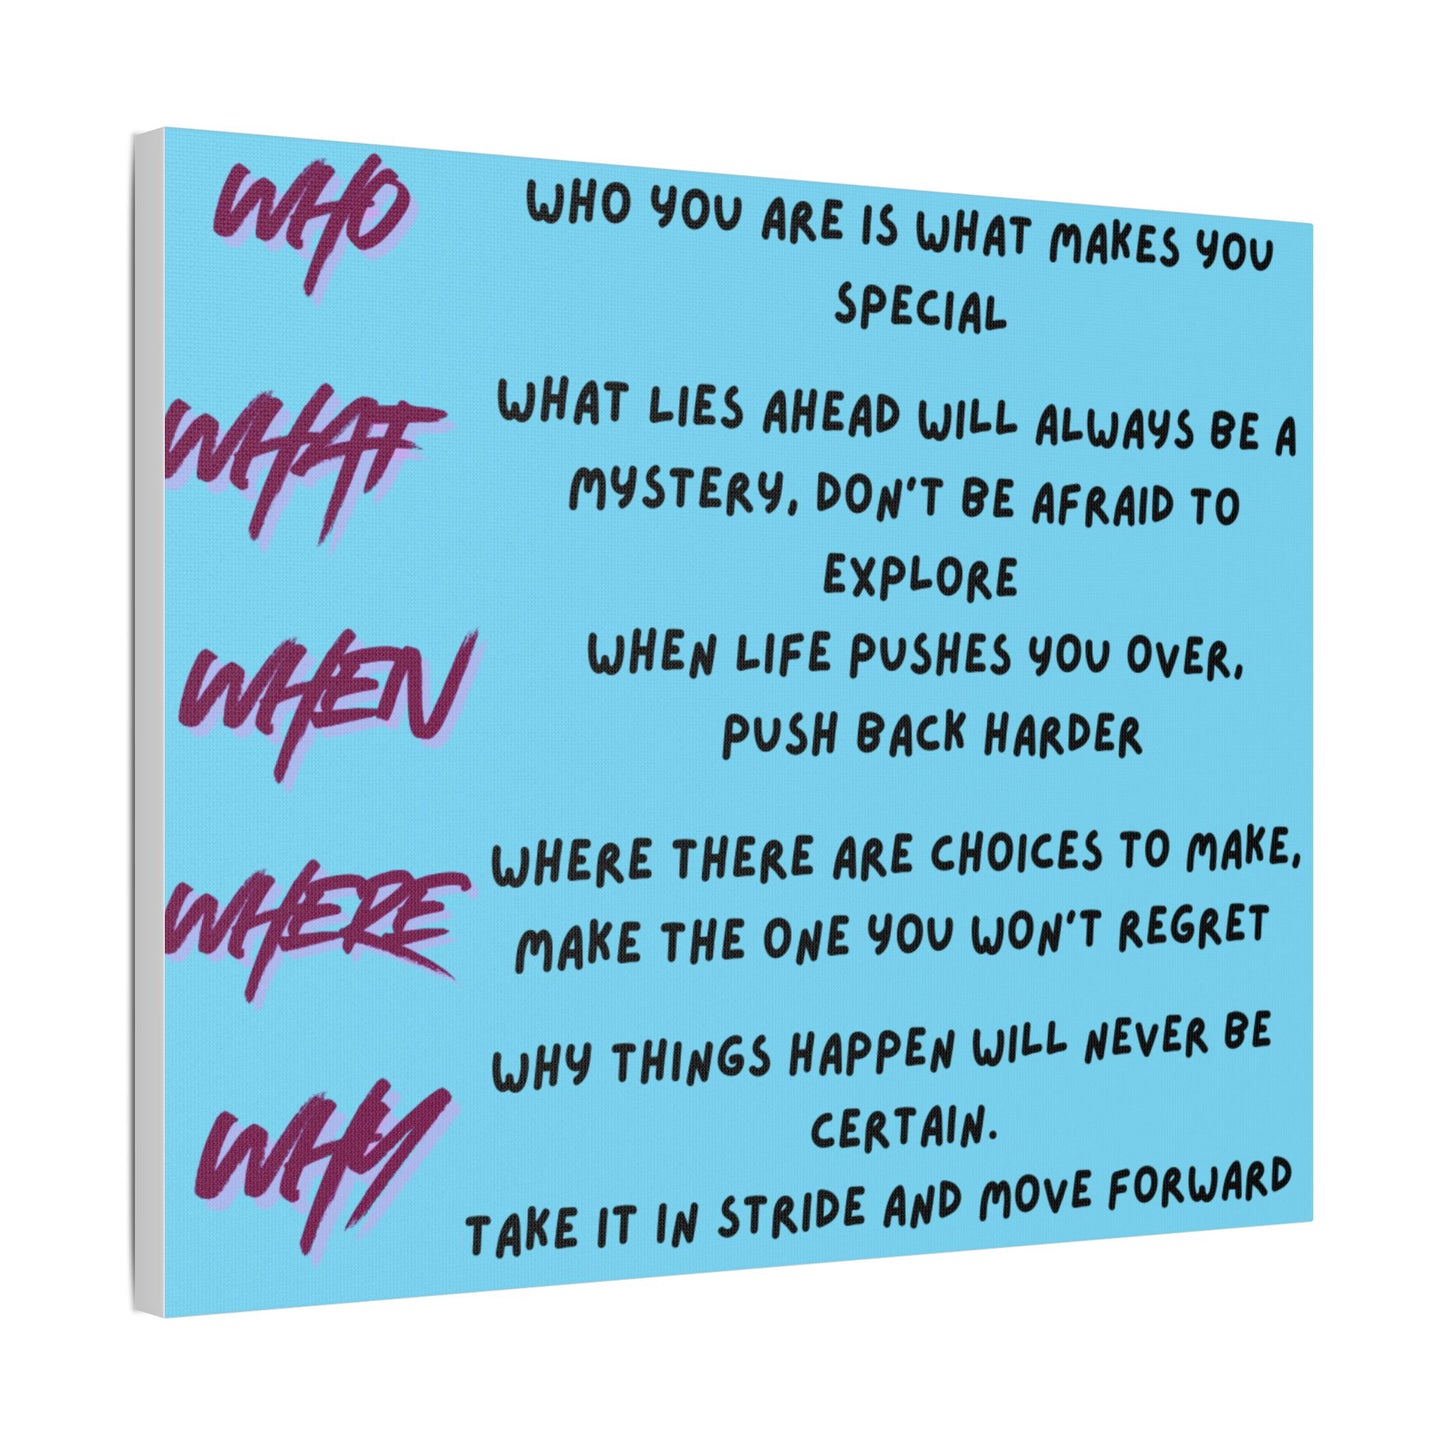 WHO
WHO YOU ARE IS WHAT MAKES YOU
SPECIAL
WHAT
WHAT LIES AHEAD WILL ALWAYS BE A
MYSTERY, DON'T BE AFRAID TO
EXPLORE
WHEN
WHEN LIFE PUSHES YOU OVER,
PUSH BACK HARDER
WHERE
WHERE THERE ARE CHOICES TO MAKE,
MAKE THE ONE YOU WON'T REGRET
WHY
WHY THINGS HAPPEN WILL NEVER BE
CERTAIN.
TAKE IT IN STRIDE AND MOVE FORWARD